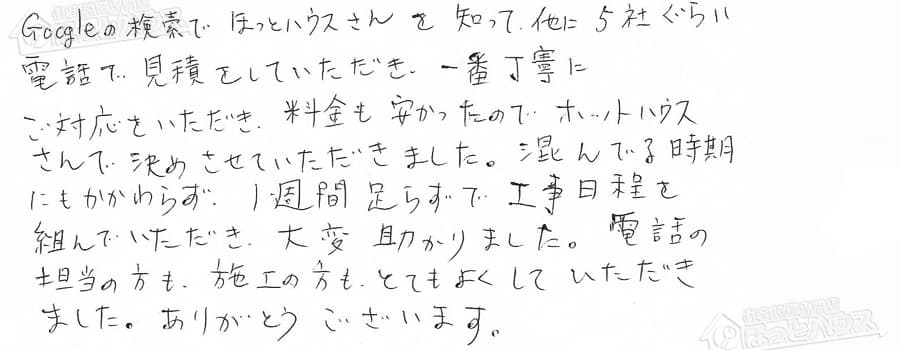 Googleの検索で ほっとハウスさんを知って、他に5社ぐらい
電話で、見積をしていただき、一番丁寧に
ご対応をいただき、料金も安かったので ホットハウス
さんで決めさせていただきました。混んでる時期
にもかかわらず、1週間足らずで工事日程を
組んでいただき、大変助かりました。電話の
担当の方も、施工の方も、とてもよくしていただき
ました。ありがとうございます。
ほっとハウス